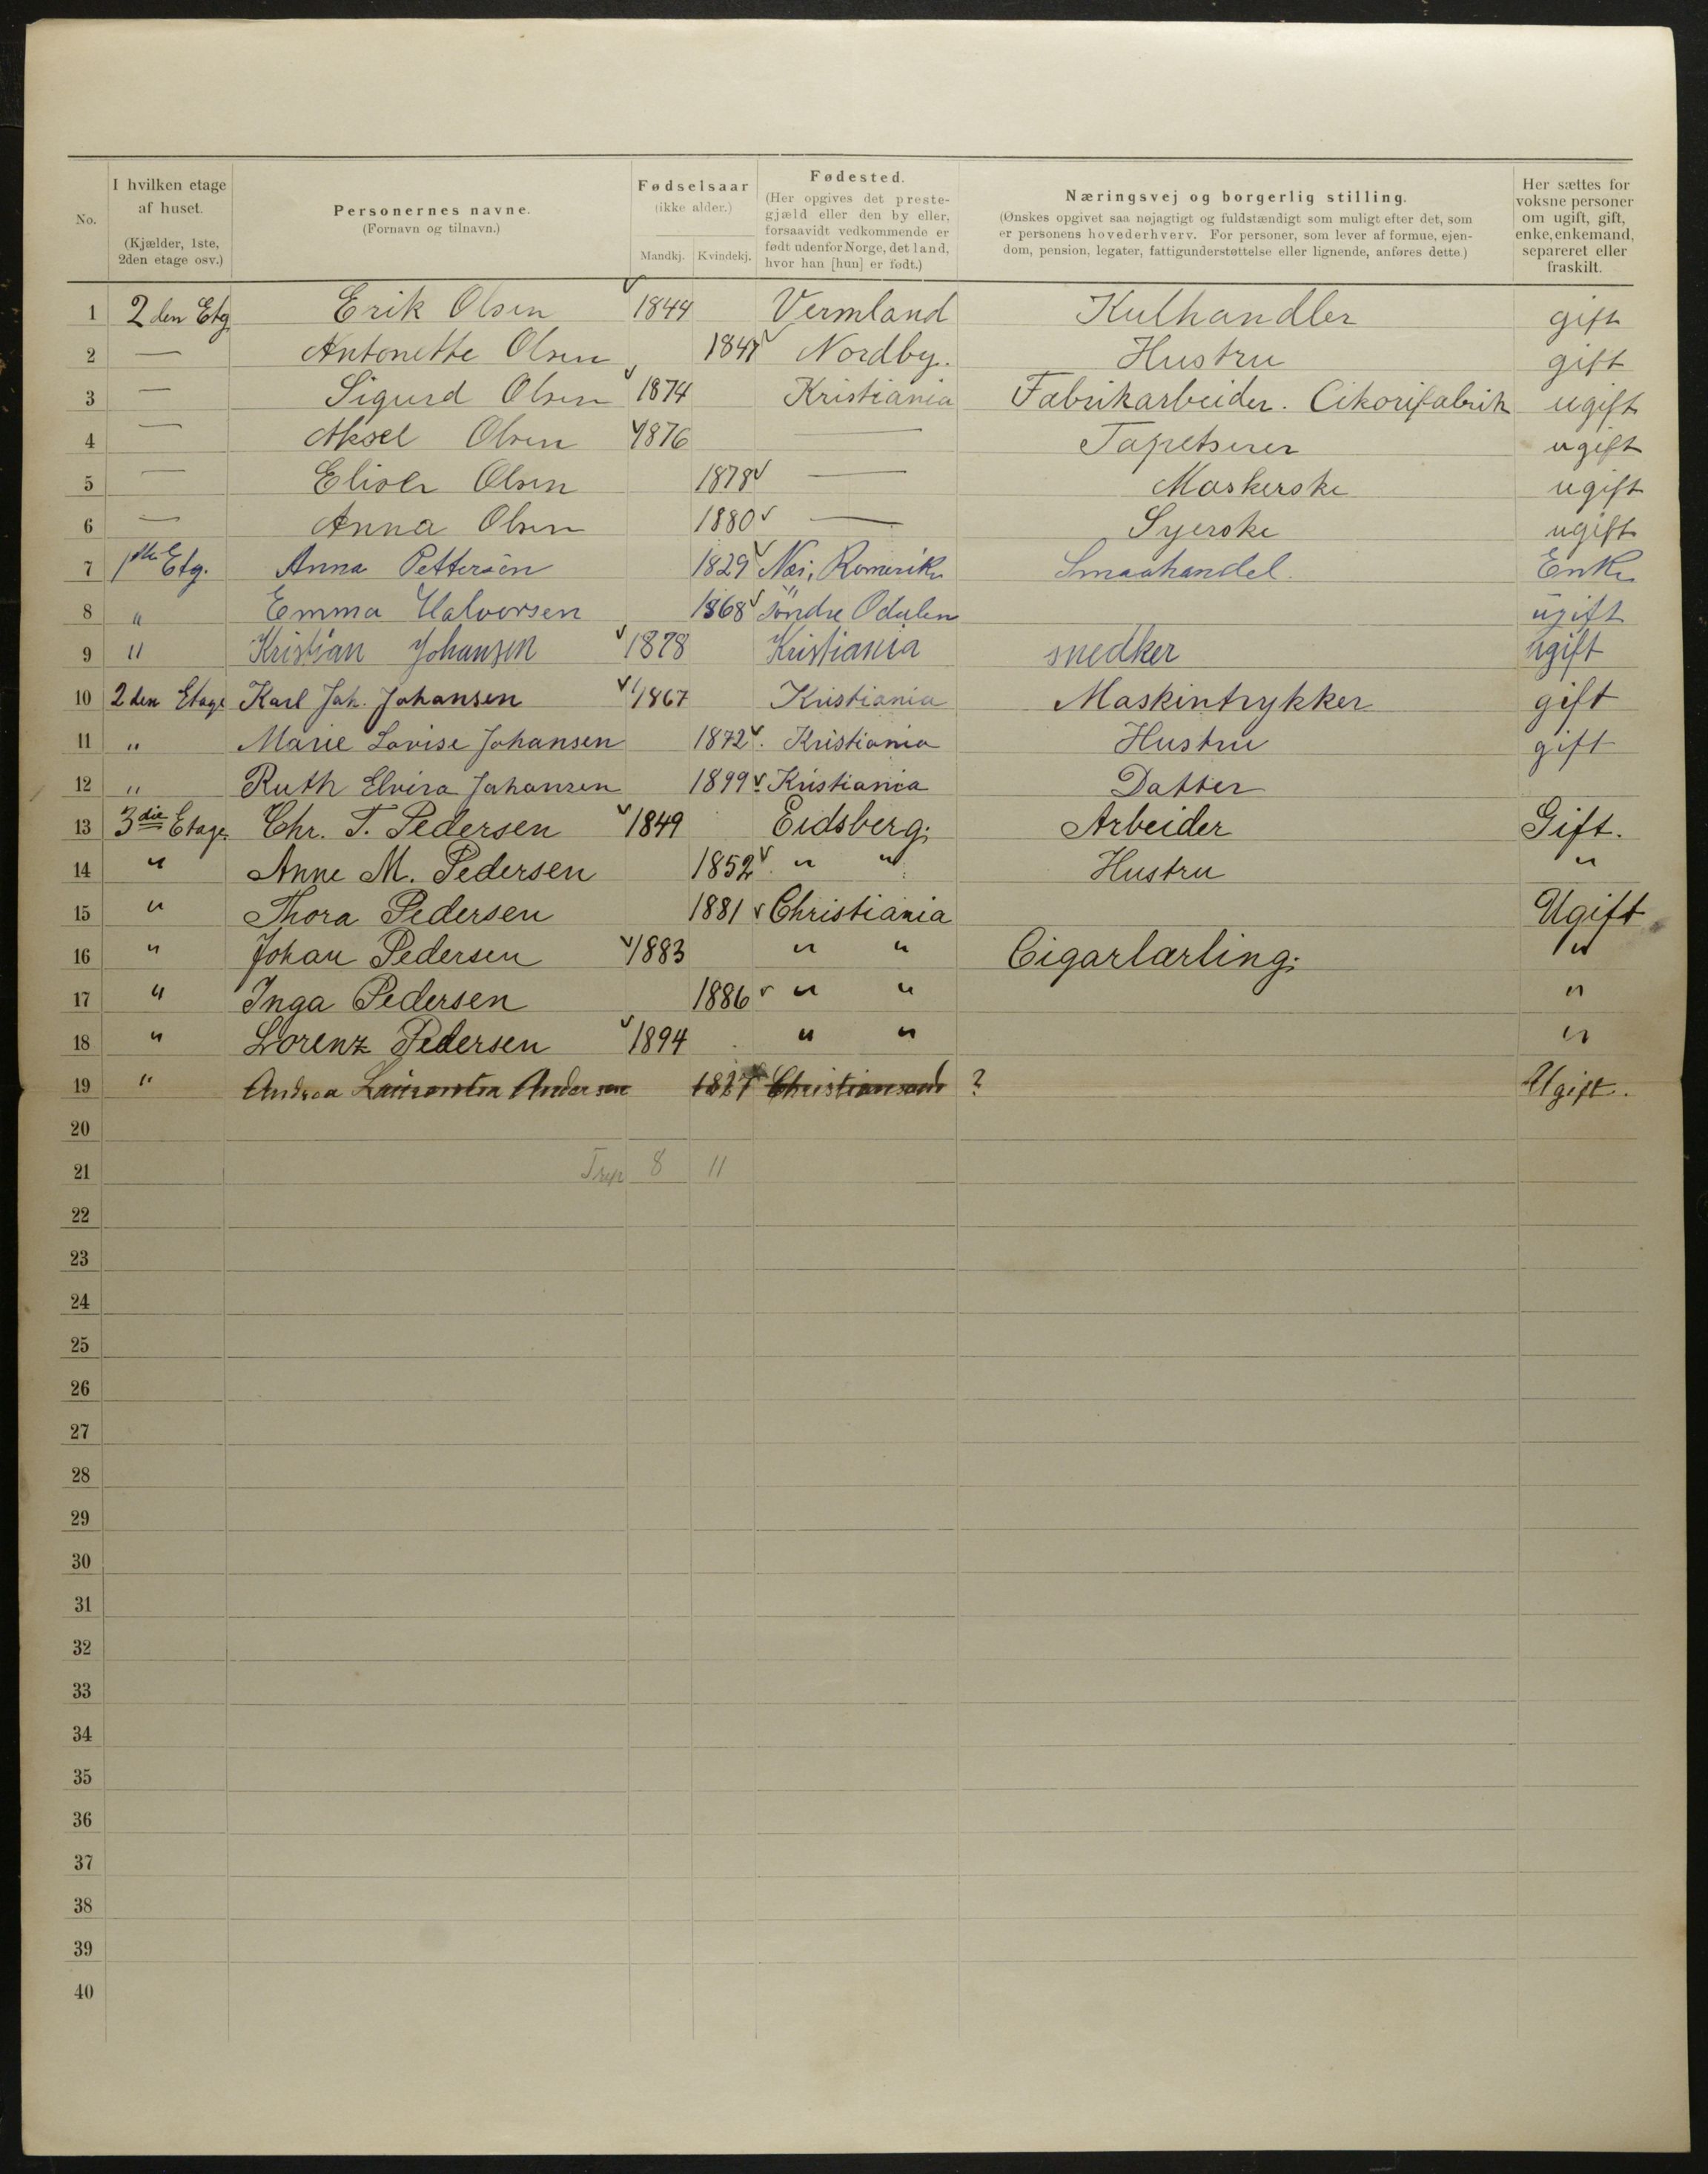 No.
I hvilken etage af huset. (Kjælder, 1ste, 2den etage osv.)
Personernes navne. (Fornavn og tilnavn.)
Fødselsaar (ikke alder.)
Mandkj. Kvindekj.
Fødested. (Her opgives det prestegjæld eller den by eller, forsaavidt vedkommende er født udenfor Norge, det land, hvor han [hun] er født.)
Næringsvej og borgerlig stilling.
(Ønskes opgivet saa nøjagtigt og fuldstændigt som muligt efter det, som er personens hovederhverv. For personer, som lever af formue, ejendom, pension, legater, fattigunderstøttelse eller lignende, anføres dette.)
Her sættes for voksne personer om ugift, gift, enke, enkemand, separeret eller fraskilt.
1 2den Etg Erik Olsen 1844 Vermland Kulhandler gift
2 — Antonette Olsen Nordby. Hustru gift
3 — Sigurd Olsen 1874 Kristiania Fabrikarbeider. Cikorifabrik ugift
4 — Aksel Olsen 1876 — Tapetserer ugift
5 — Olsen 1878 — Maskerske ugift
6 — Anna Olsen 1880 — Syerske ugift
7 1ste Etg. Anna Pettersen 1829 Nes, Romerike Smaahandel. Enke
8 " Emma Halvorsen 1868 Søndre Odalen ugift
9 " Kristian Johansen 1878 Kristiania snedker ugift
10 2den Etage Karl Joh. Johansen 1867 Kristiania Maskintrykker gift
11 " Marie Lovise Johansen 1872 Kristiania Hustru gift
12 " Ruth Elvira Johansen 1899 Kristiania Datter
13 3die Etage Chr. T. Pedersen 1849 Eidsberg. Arbeider Gift.
14 " Anne M. Pedersen 1852 " " Hustru "
15 " Thora Pedersen 1881 Christiania Ugift
16 " Johan Pedersen 1883 " " Cigarlærling. "
17 " Inga Pedersen 1886 " " "
18 " Lorenz Pedersen 1894 " " "
19 " Andrea Andersen Christiansand ? Ugift.
20
21 8 11
22
23
24
25
26
27
28
29
30
31
32
33
34
35
36
37
38
39
40